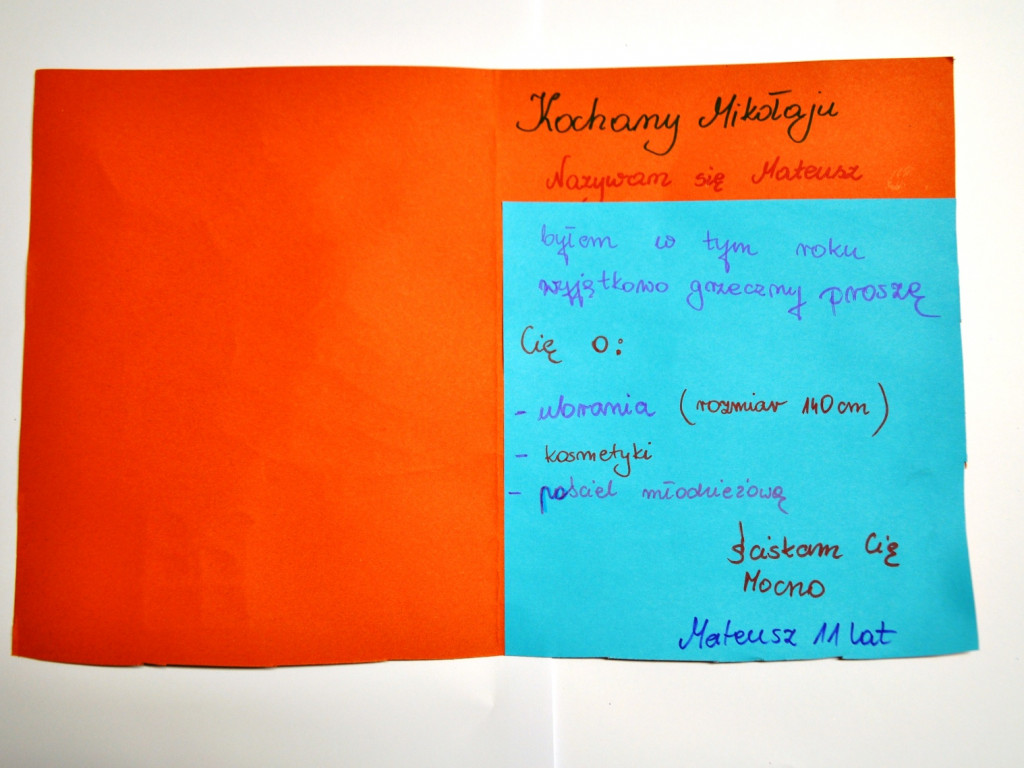 Kochany Mikołaju
Nazywam się Mateusz
byłem w tym roku
wyjątkowo grzeczny proszę
Cię o:
- ubrania (rozmiar 140cm)
- kosmetyki
- pościel młodzieżową
Ściskam Cię
Mocno
Mateusz 11 lat